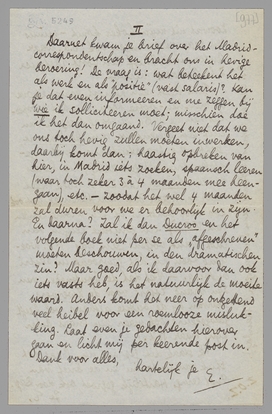 (1941)
II
Daarnet kwam je brief over het Madrid-
correspondentschap en bracht ons in hevige
beroering! De vraag is: wat beteekent het
als werk en als "positie" (vast salaris)? Kan
je dat even informeeren en me zeggen bij
wie ik solliciteeren moet; misschien doe
ik het dan omgaand. Vergeet niet dat we
ons toch hevig zullen moeten inwerken,
daarbij komt dan: haastig opbreken van
hier, in Madrid iets zoeken, spaansch leeren
(waar toch zeker 3 à 4 maanden mee heen-
gaan), etc. — zoodat het wel 4 maanden
zal duren voor we er behoorlijk in zijn.
En daarna? Zal ik dan Ducroo en het
volgende boek niet per se als "afgeschreven"
moeten beschouwen, in den dramatischen
zin? Maar goed, als ik daarvoor dan ook
iets vasts heb, is het natuurlijk de moeite
waard. Anders komt het neer op ontzettend
veel heibel voor een roemlooze misluk-
king. Laat even je gedachten hierover
gaan en licht mij per keerende post in.
Dank voor alles,
hartelijk je E.